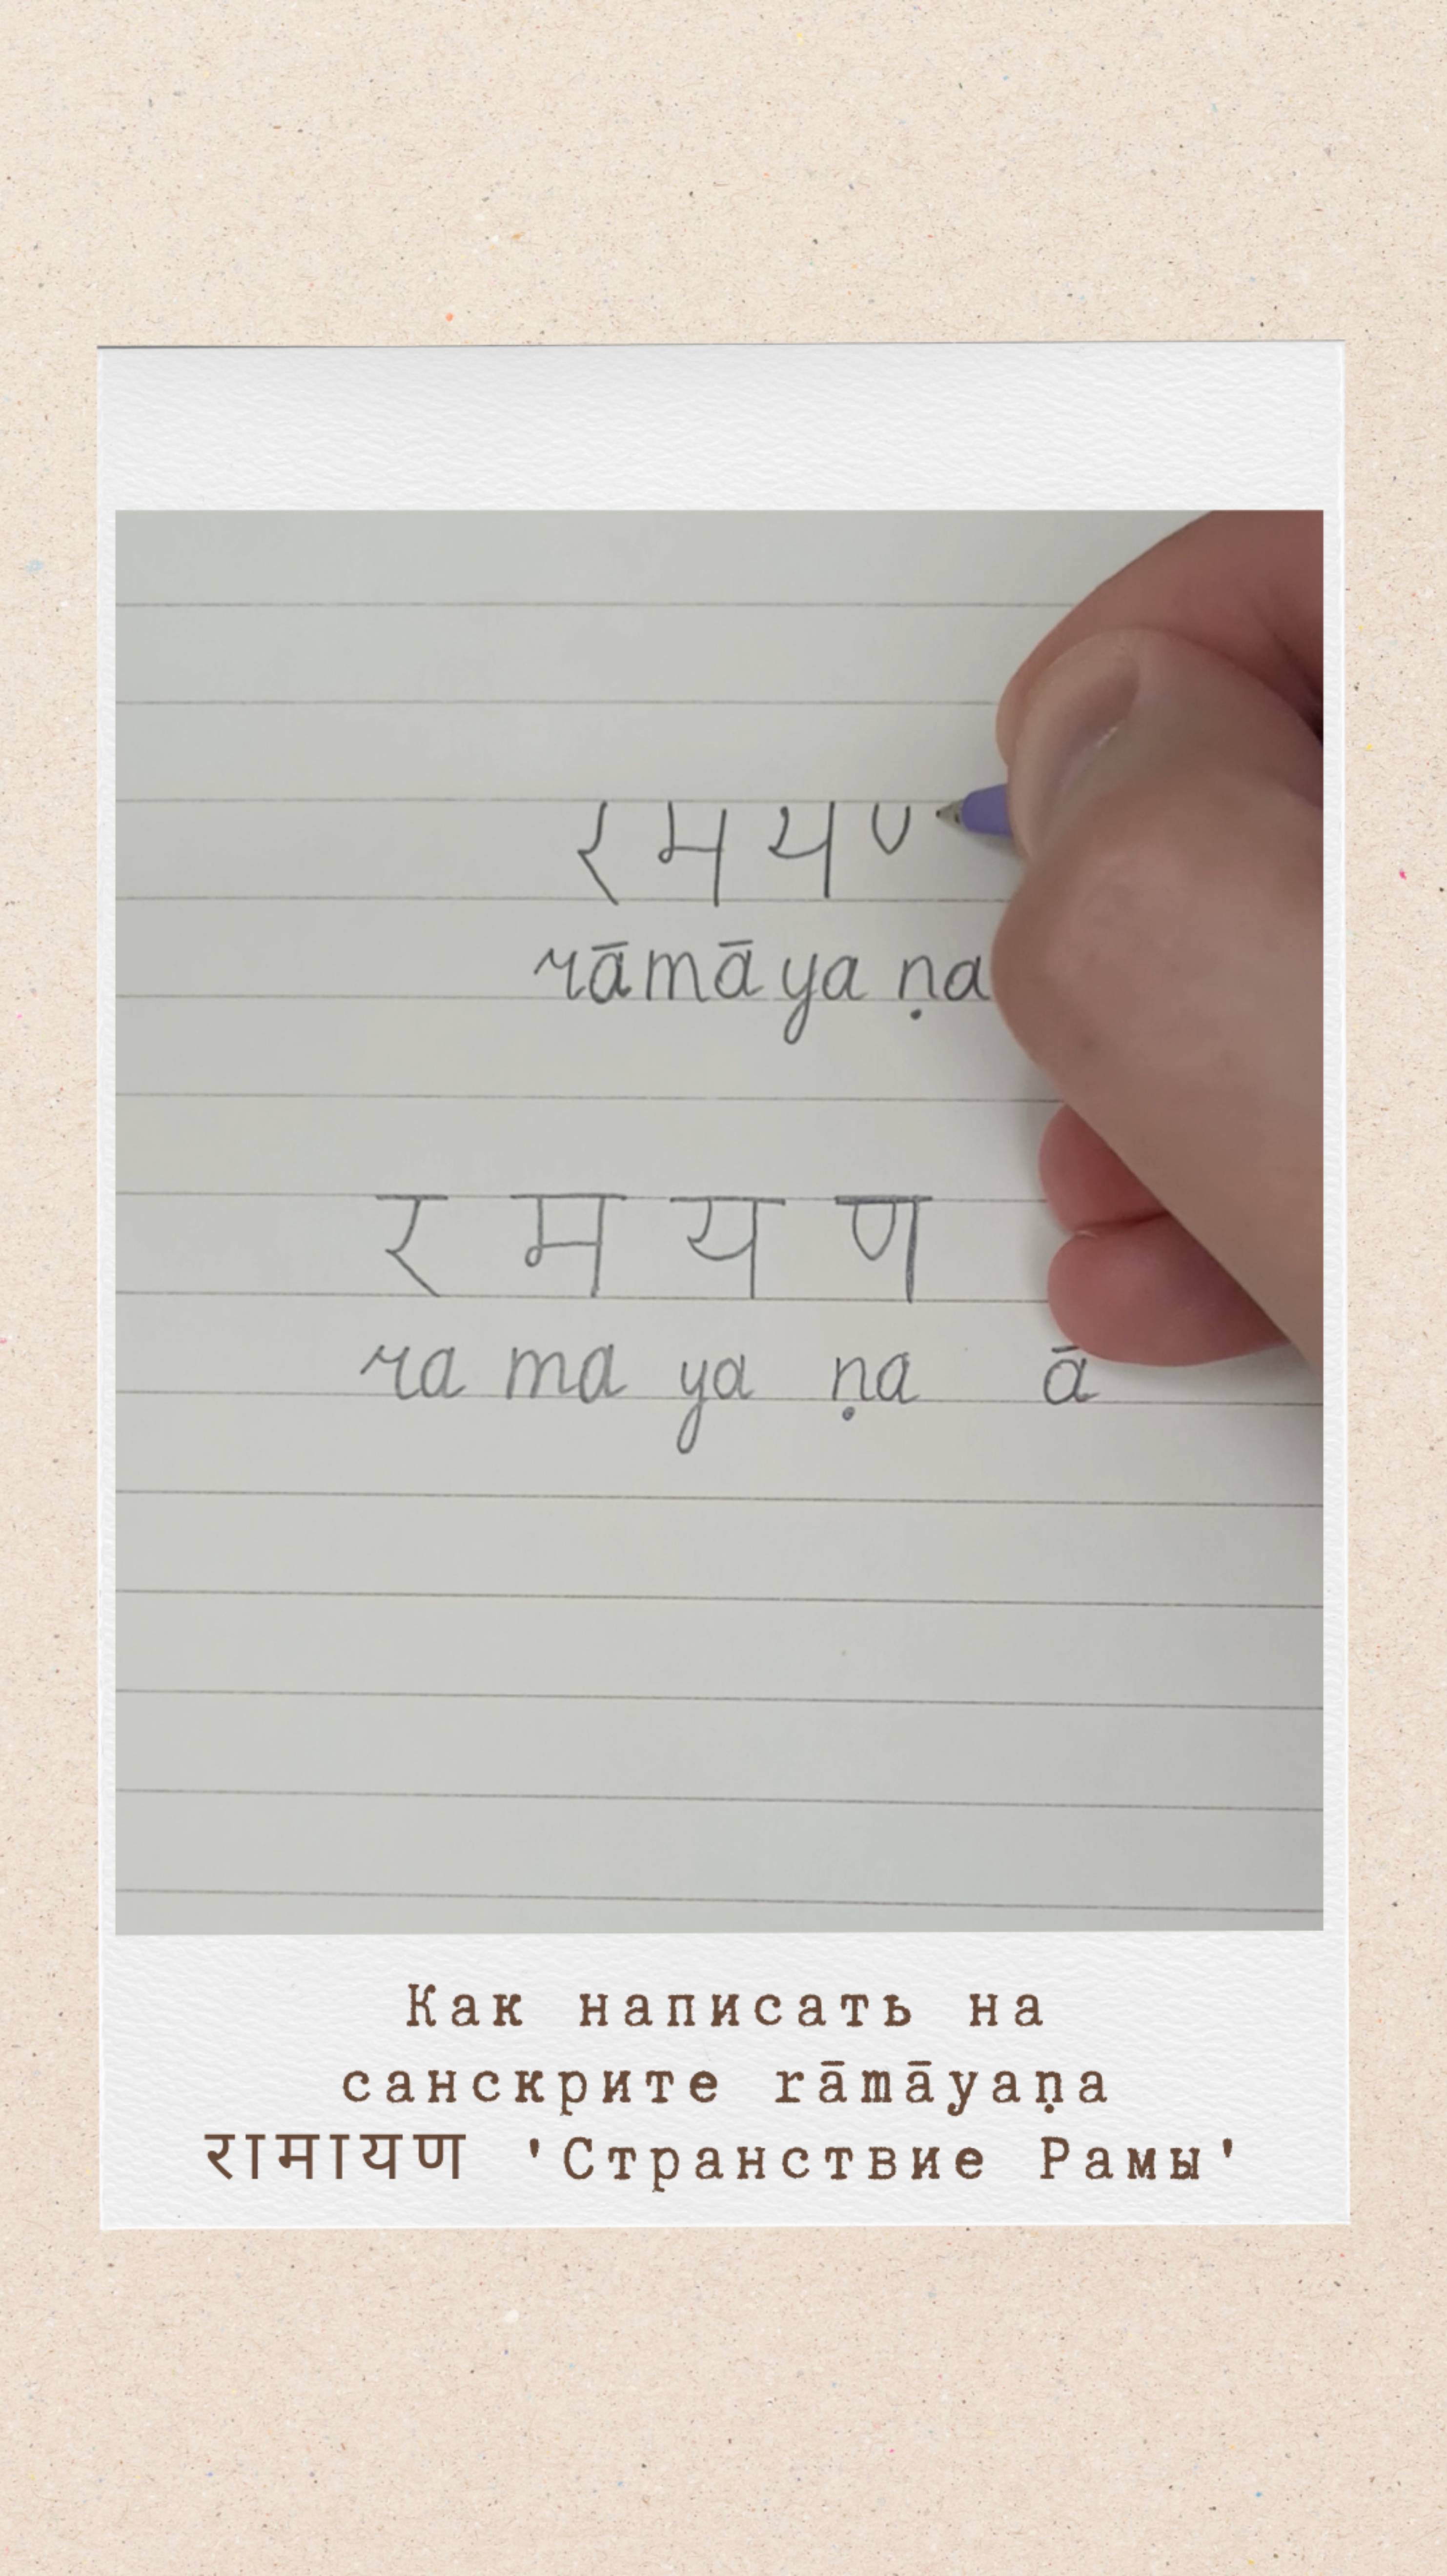 र म य ण
rāmāyaṇa
र म य ण
ra ma ya ṇa ā
Как написать на
санскрите rāmāyaṇa
रामायण 'Странствие Рамы'